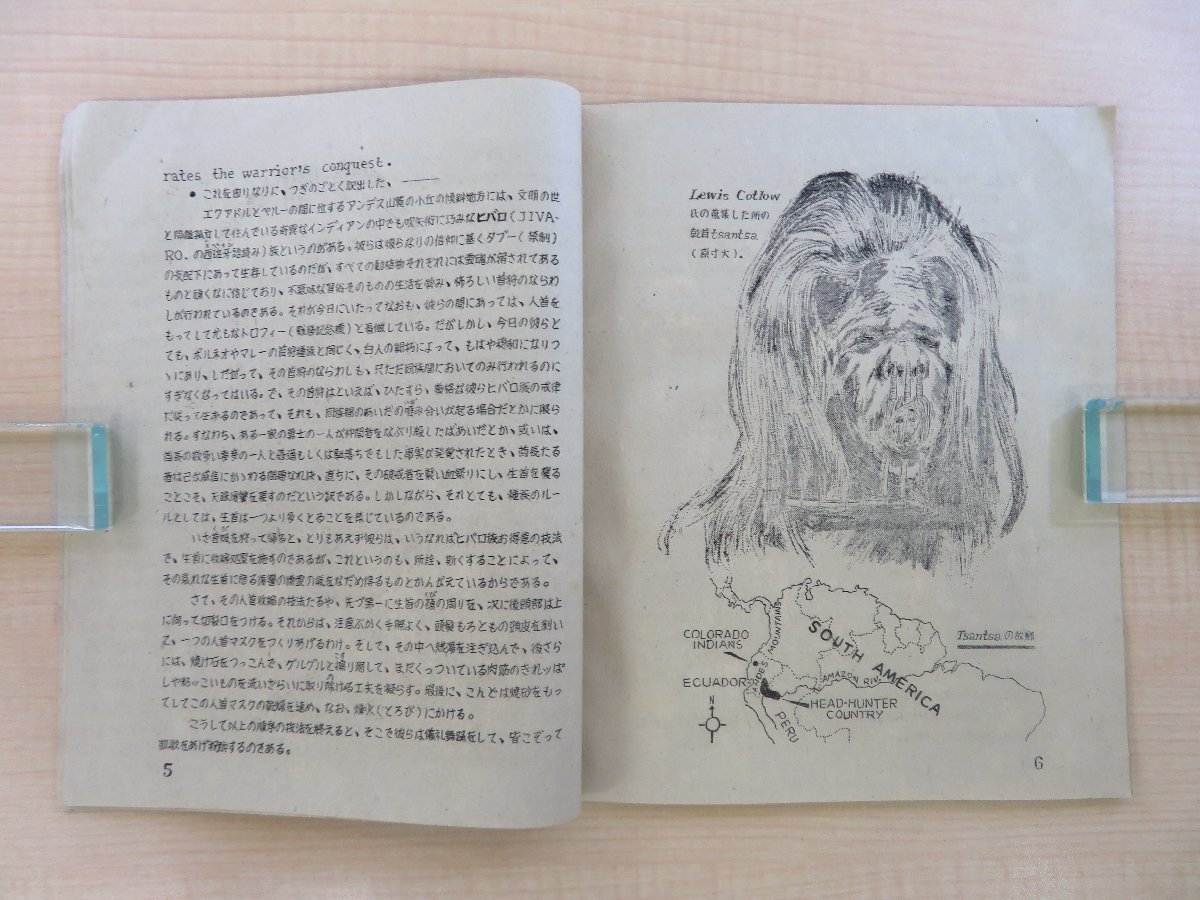 rates the warrior's conquest.
● これを図りなりに、つぎのごとく訳出した、——
エクアドルとペルーの間に位するアンデス山脈の小丘の傾斜地方には、文明の世
と隔離孤立して住んでいる奇異なインディアンの中でも吹矢術に巧みなヒバロ(JIVA-
RO. の西班牙語読み)族というのがある。彼らは彼らなりの信仰に基くタブー(禁制)
の支配下にあって生存しているのだが、すべての動植物それぞれには霊魂が宿されてある
ものと頑くなに信じており、不気味な習俗そのものの生活を営み、怖ろしい首狩のならわ
しが行われているのである。それが今日にいたってなおも、彼らの間にあっては、人首を
もってして尤もなトロフィー(戦勝記念標)と看做している。だがしかし、今日の彼らと
ても、ボルネオやマレーの首狩種族と同じく、白人の開拓によって、もはや穏和になりつ
ゝにあり、したがって、その首狩のならわしも、只ただ同族間においてのみ行われるのに
すぎなくなってはいる。で、その首狩はといえば、ひたすら、厳格な彼らヒバロ族の戒律
に従って生ずるのであって、それも、同族間のあいだの恨み分いが起る場合だとかに限ら
れる。すなわち、ある一家の勇士の一人が仲間者をなぶり殺したばあいだとか、或いは、
酋長の数多い妻妾の一人と姦通もしくは駈落ちでもした事実が発覚されたとき、酋長たる
者は己な威信にかゝわる問題なれば、直ちに、その破戒者を襲い血祭りにし、生首を獲る
ことこそ、天誅復讐を果すのだという訳である。しかしながら、それとても、種族のルー
ルとしては、生首は一つより多くとることを禁じているのである。
いざ首級を狩って帰ると、とりもあえず彼らは、いうなればヒバロ族お得意の技法
で、生首に収縮処置を施すのであるが、これというのも、所詮、斯くすることによって、
その哀れな生首に宿る復讐の怨霊の気をなだめ得るものとかんがえているからである。
さて、その人首収縮の技法たるや、先づ第一に生首の頸の周りを、次に後頭部は上
に向って切裂口をつける。それからは、注意ぶかく手際よく、頭髪もろともの頭皮を剥い
で、一つの人首マスクをつくりあげるわけ。そして、その中へ熱湯を注ぎ込んで、後ざら
には、焼け石をつっこんで、グルグルと擦り廻して、まだくっついている肉筋のきれッぱ
しや粘ッこいものを洗いざらいに取り除ける工夫を凝らす。最後に、こんどは焼砂をもっ
てしてこの人首マスクの乾燥を速め、なお、燻火(とろび)にかける。
こうして以上の順序の技法を終えると、そこで彼らは儀礼舞踊をして、皆こぞって
歌歌をあげ祝酔するのである。
5
Lewis Cotlow
氏の蒐集した所の
乾首tsantsa
(原寸大).
COLORADO
INDIANS
ECUADOR
ANDES MOUNTAINS
SOUTH AMERICA
AMAZON RIV.
HEAD-HUNTER
COUNTRY
PERU
N
Tsantsaの故郷
6